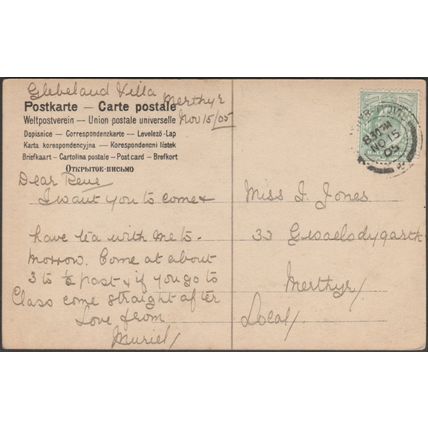 Glebeland Villa
Merthyr
Nov 15/05
Postkarte — Carte postale
Weltpostverein — Union postale universelle
Dopisnice — Correspondenzkarte — Levelező-Lap
Karta korespondencyjna — Korespondenční lístek
Briefkaart — Cartolina postale — Post card — Brefkort
Открытое письмо
Dear Rene
I want you to come &
have tea with me to-
morrow. Come at about
3 to ½ past & if you go to
Class come straight after
Love from
Muriel/
Miss I. Jones
33 Gwaelodygarth
Merthyr/
Local/
MERTHYR
8.30 PM
NO 15
05